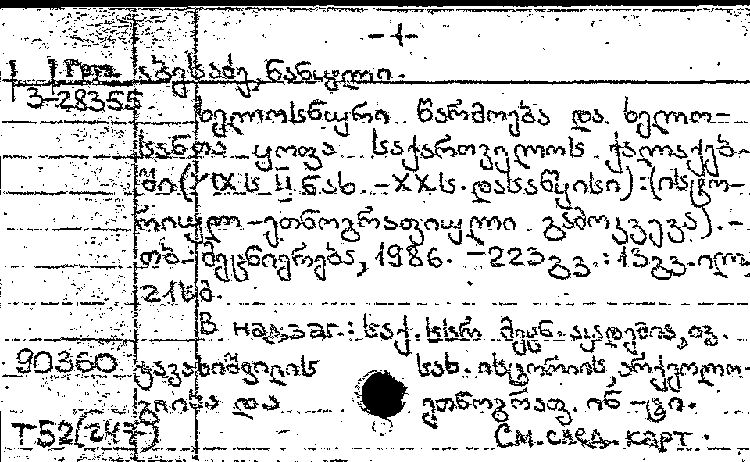 -1-
Груз აბესაძე, ნანული.
3-28355
ხელოსნური წარმოება და ხელო-
სანთა ყოფა საქართველოს ქალაქებ-
ში (XIX ს. II ნახ. - XX ს. დასაწყისი) : (ისტო-
რიულ-ეთნოგრაფიული გამოკვევა). -
თბ.: მეცნიერება, 1986. - 223 გვ. : 13 გვ. ილ.
21 სმ.
В надзаг.: საქ. სსრ მეცნ. აკადემია, ივ.
90360 ჯავახიშვილის სახ. ისტორიის, არქეოლო-
გიისა და ეთნოგრაფ. ინ-ტი.
T52(247) См. след. карт.